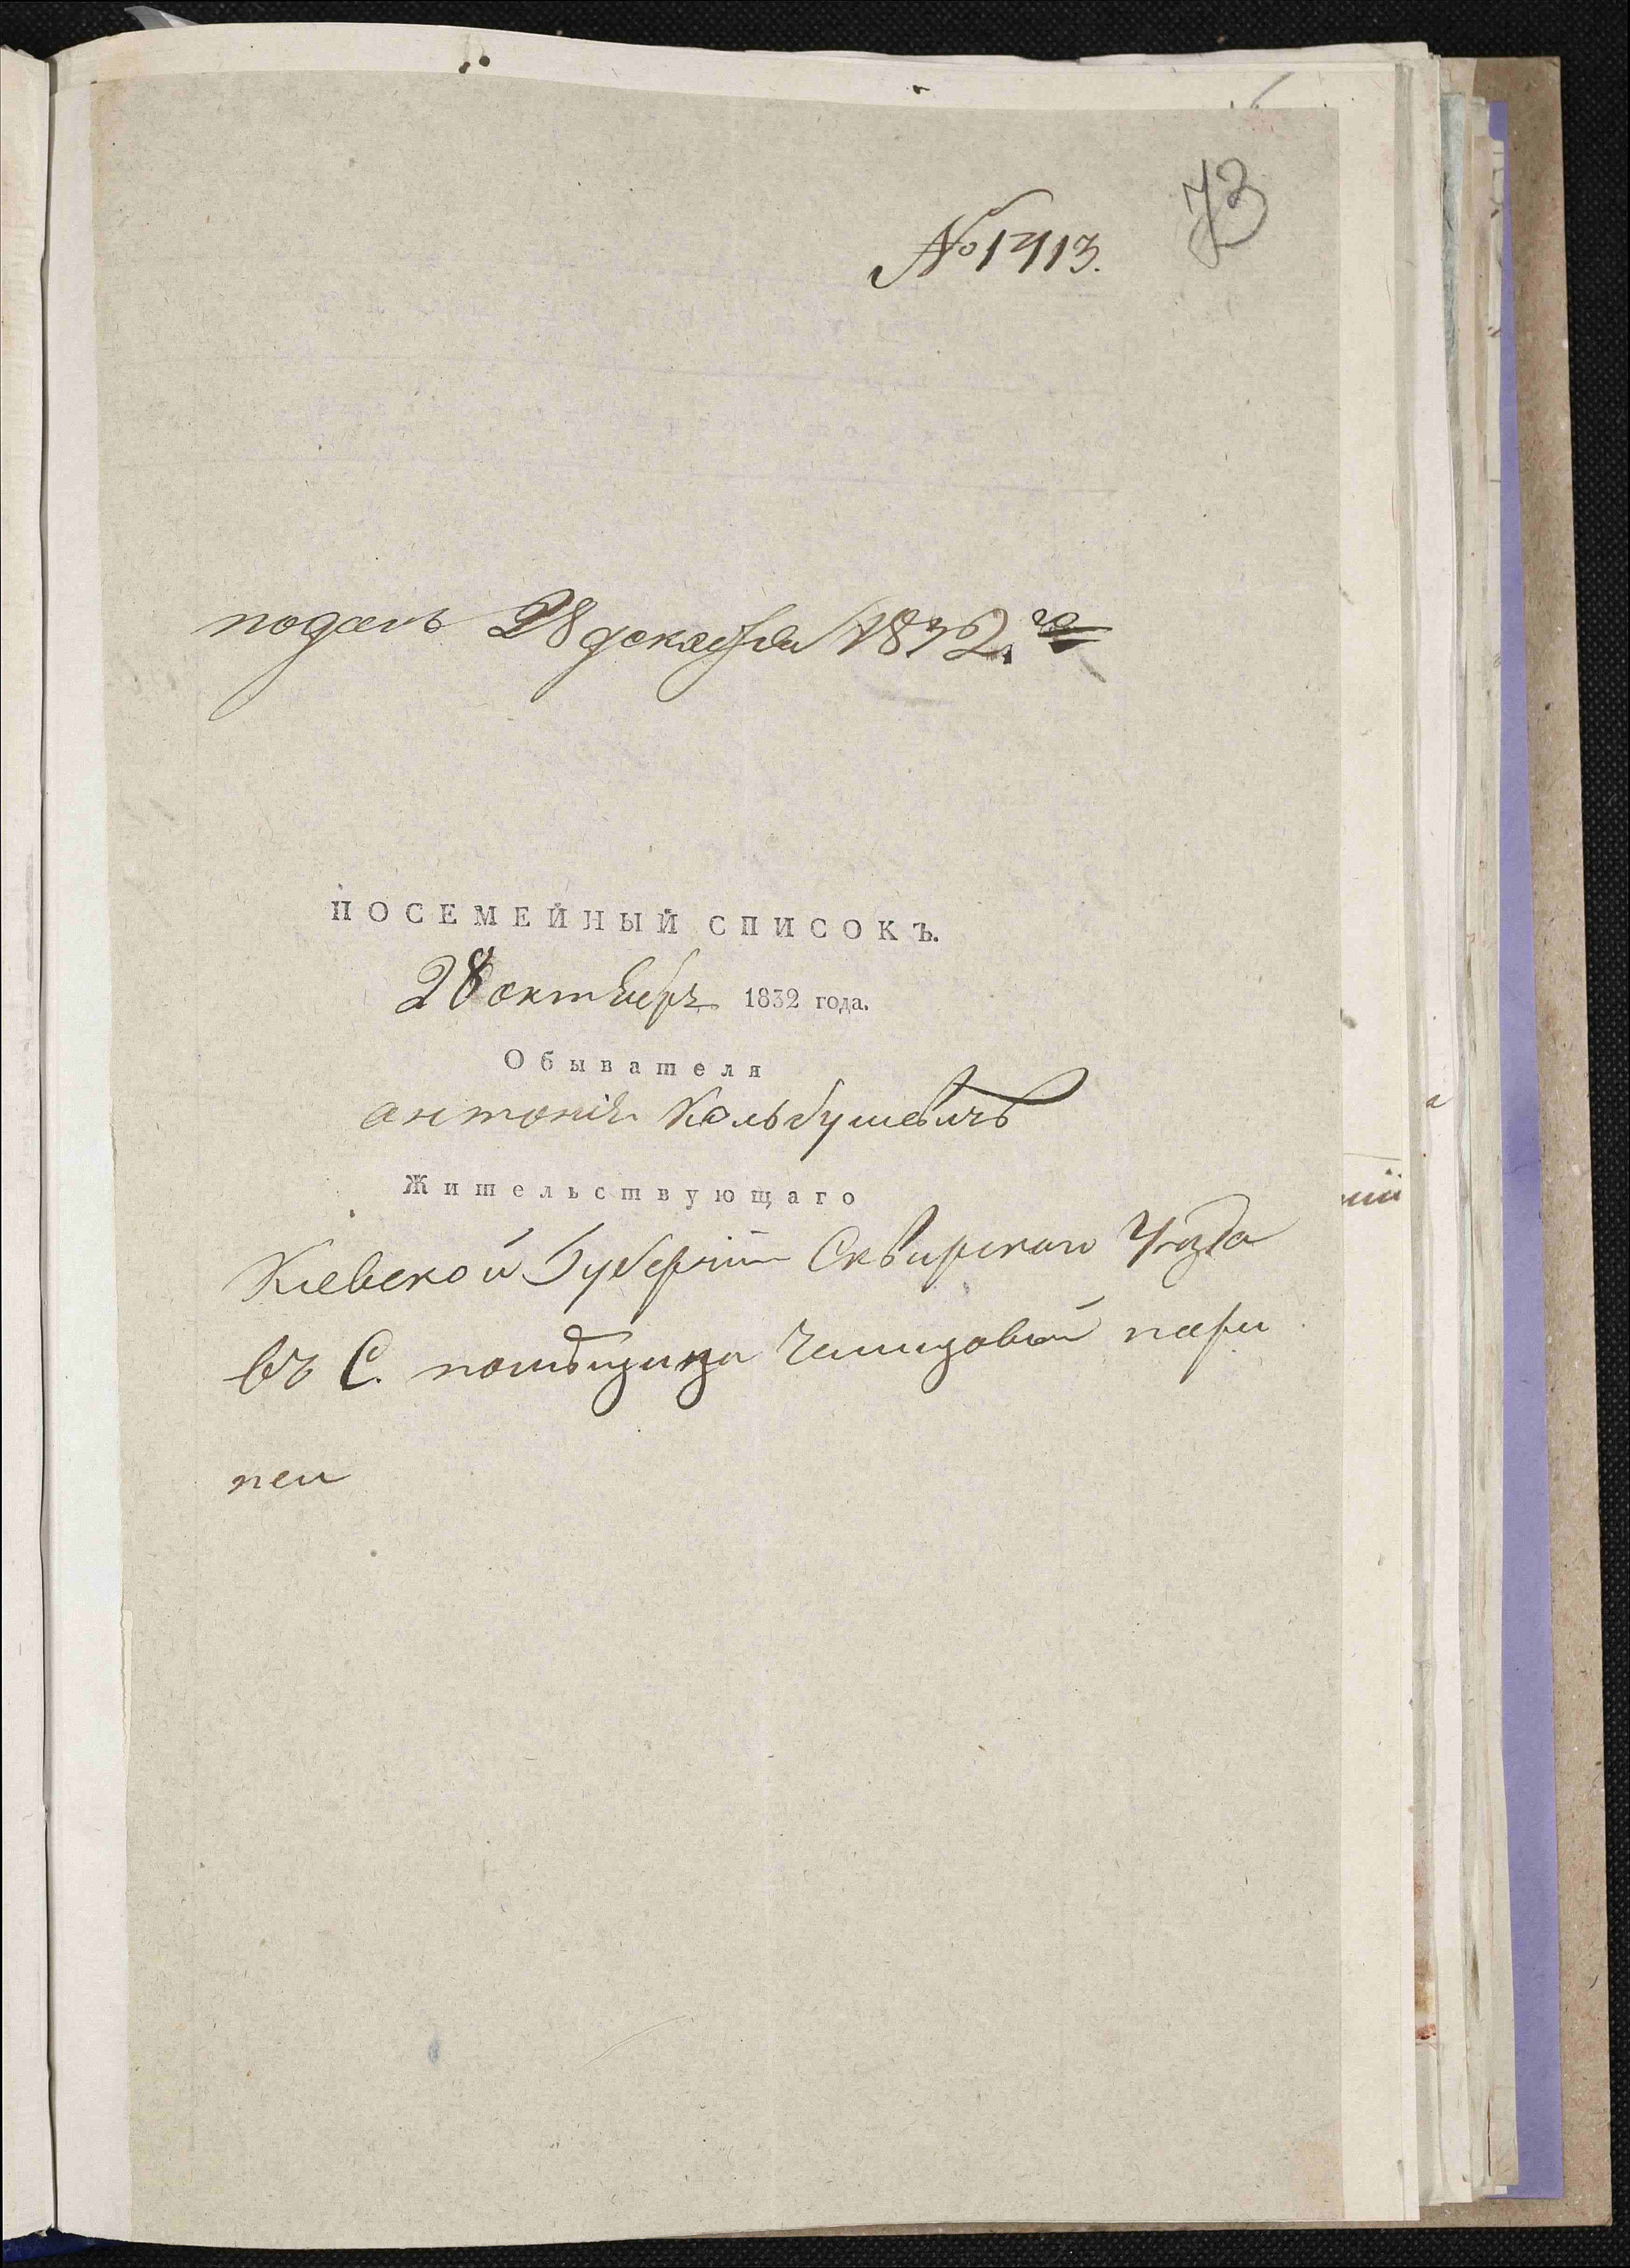 73
№ 1413.
поданъ 28 декабря 1832. го
ПОСЕМЕЙНЫЙ СПИСОКЪ.
28 октебря 1832 года.
Обывателя
антонія Кольбушевичъ
Жительствующаго
Кіевской Губерніи Сквирскаго Уезда
въ С. помѣщица пари
пси